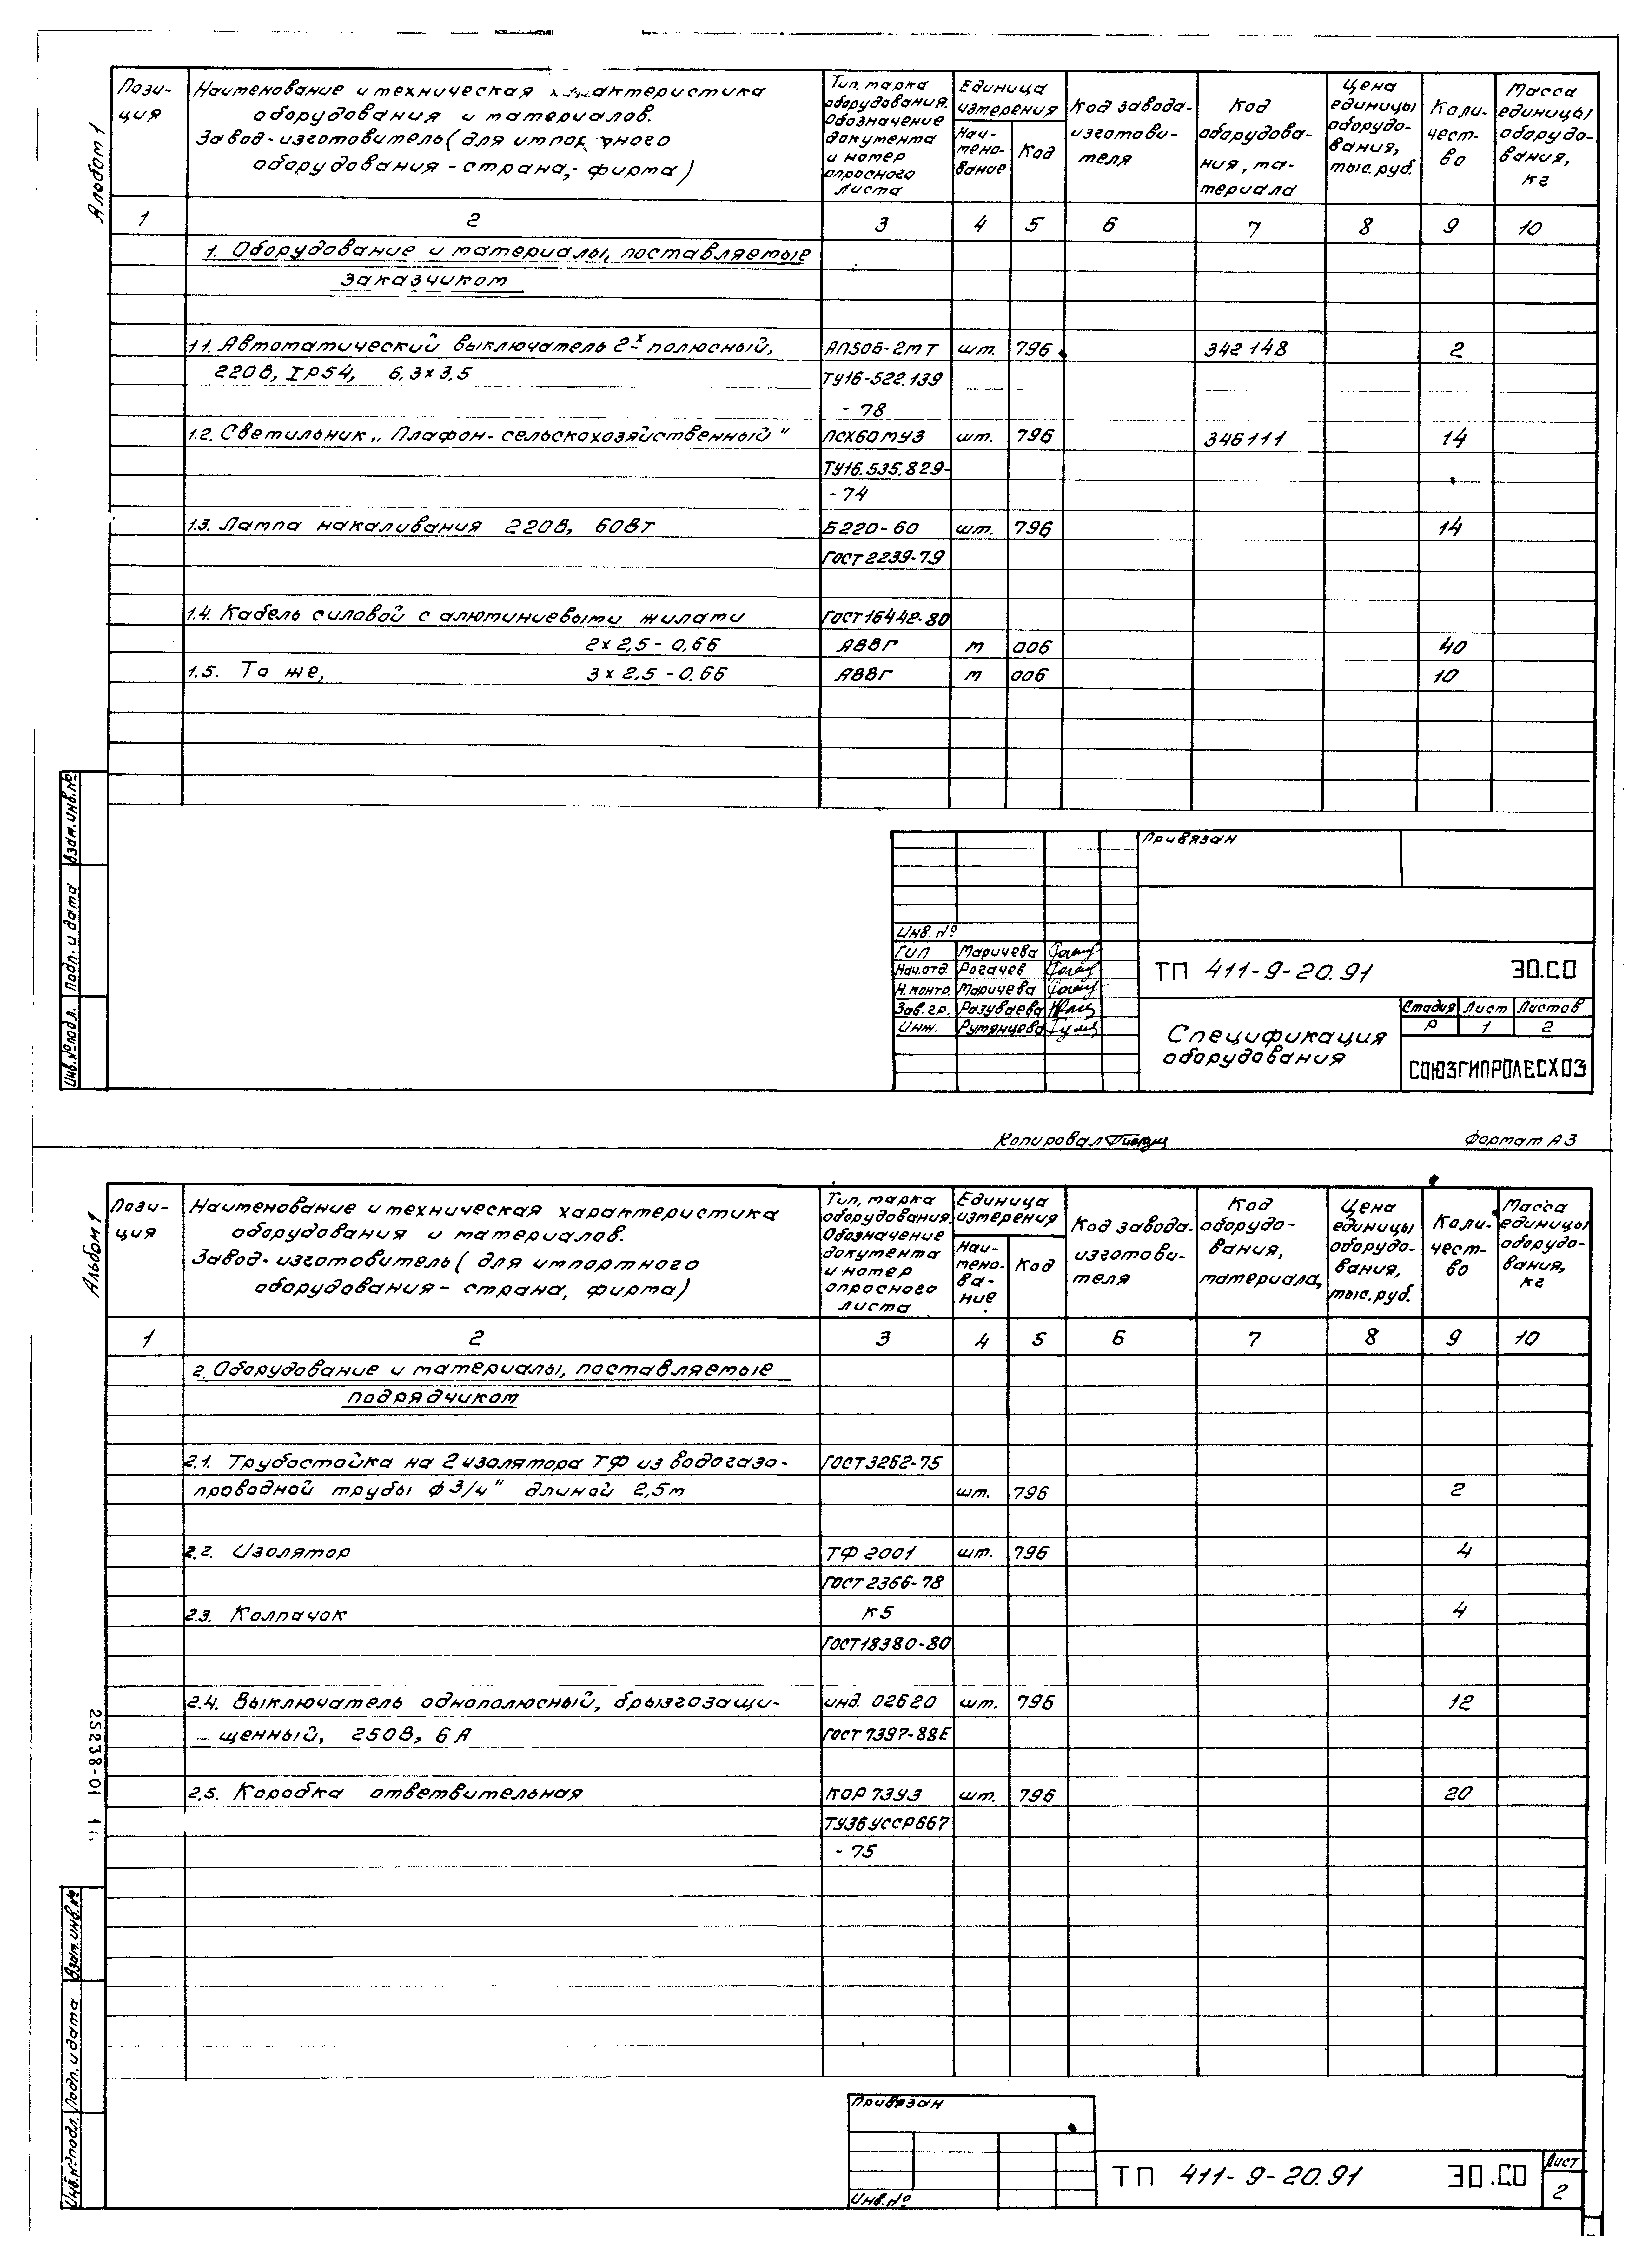 Альбом 1
Пози-
ция
Наименование и техническая характеристика
оборудования и материалов.
Завод-изготовитель (для импортного
оборудования - страна,- фирма)
Тип, марка
оборудования.
Обозначение
документа
и номер
опросного
листа
Единица
измерения
Наи-
мено-
вание
Код
Код завода-
изготови-
теля
Код
оборудова-
ния, ма-
териала
Цена
единицы
оборудо-
вания,
тыс. руб.
Коли-
чест-
во
Масса
единицы
оборудо-
вания,
кг
1 2 3 4 5 6 7 8 9 10
1. Оборудование и материалы, поставляемые
заказчиком
1.1. Автоматический выключатель 2х полюсный, АП50Б-2МТ шт. 796 342 148 2
220В, IP54, 6,3х3,5 ТУ16-522.139
- 78
1.2. Светильник „Плафон-сельскохозяйственный" ПСХ60МУ3 шт. 796 346111 14
ТУ16.535.829-
- 74
1.3. Лампа накаливания 220В, 60Вт Б220-60 шт. 796 14
ГОСТ 2239-79
1.4. Кабель силовой с алюминиевыми жилами ГОСТ16442-80
2х2,5 - 0,66 АВВГ м 006 40
1.5. То же, 3х2,5 - 0,66 АВВГ м 006 10
Взам. инв. №
Подп. и дата
Инв. № подл.
Привязан
Инв. №
ГИП Маричева
Нач. отд. Рогачев
Н. контр. Маричева
Зав. гр. Разуваева
Инж. Румянцева
ТП 411-9-20.91 ЭО.СО
Спецификация
оборудования
Стадия Лист Листов
Р 1 2
СОЮЗГИПРОЛЕСХОЗ
Копировал
Формат А3
Альбом 1
Пози-
ция
Наименование и техническая характеристика
оборудования и материалов.
Завод-изготовитель (для импортного
оборудования - страна, фирма)
Тип, марка
оборудования.
Обозначение
документа
и номер
опросного
листа
Единица
измерения
Наи-
мено-
ва-
ние
Код
Код завода-
изготови-
теля
Код
оборудо-
вания,
материала,
Цена
единицы
оборудо-
вания,
тыс. руб.
Коли-
чест-
во
Масса
единицы
оборудо-
вания,
кг
1 2 3 4 5 6 7 8 9 10
2. Оборудование и материалы, поставляемые
подрядчиком
2.1. Трубостойка на 2 изолятора ТФ из водогазо- ГОСТ3262-75
проводной трубы ф 3/4" длиной 2,5м шт. 796 2
2.2. Изолятор ТФ 2001 шт. 796 4
ГОСТ 2366-78
2.3. Колпачок К5 4
ГОСТ18380-80
2.4. Выключатель однополюсный, брызгозащи- инд. 02620 шт. 796 12
щенный, 250В, 6А ГОСТ 7397-88Е
2.5. Коробка ответвительная КОР 73У3 шт. 796 20
ТУ36УССР667
- 75
25238-01
Взам. инв. №
Подп. и дата
Инв. № подл.
Привязан
Инв. №
ТП 411-9-20.91 ЭО.СО
Лист
2